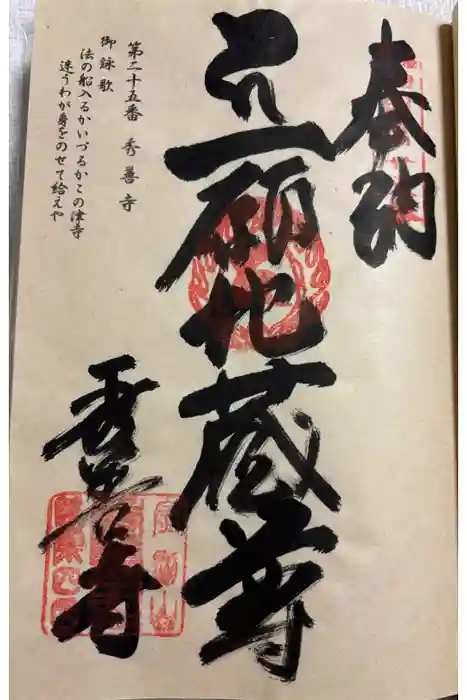 奉納
一願地蔵尊
第二十五番 秀善寺
御詠歌
法の船入るかいづるかこの津寺
迷うわが身をのせて給えや
秀善寺